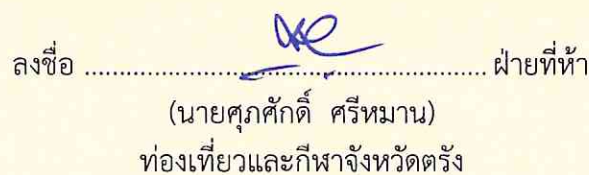 ลงชื่อ ................................................................ ฝ่ายที่ห้า
(นายศุภศักดิ์ ศรีหมาน)
ท่องเที่ยวและกีฬาจังหวัดตรัง